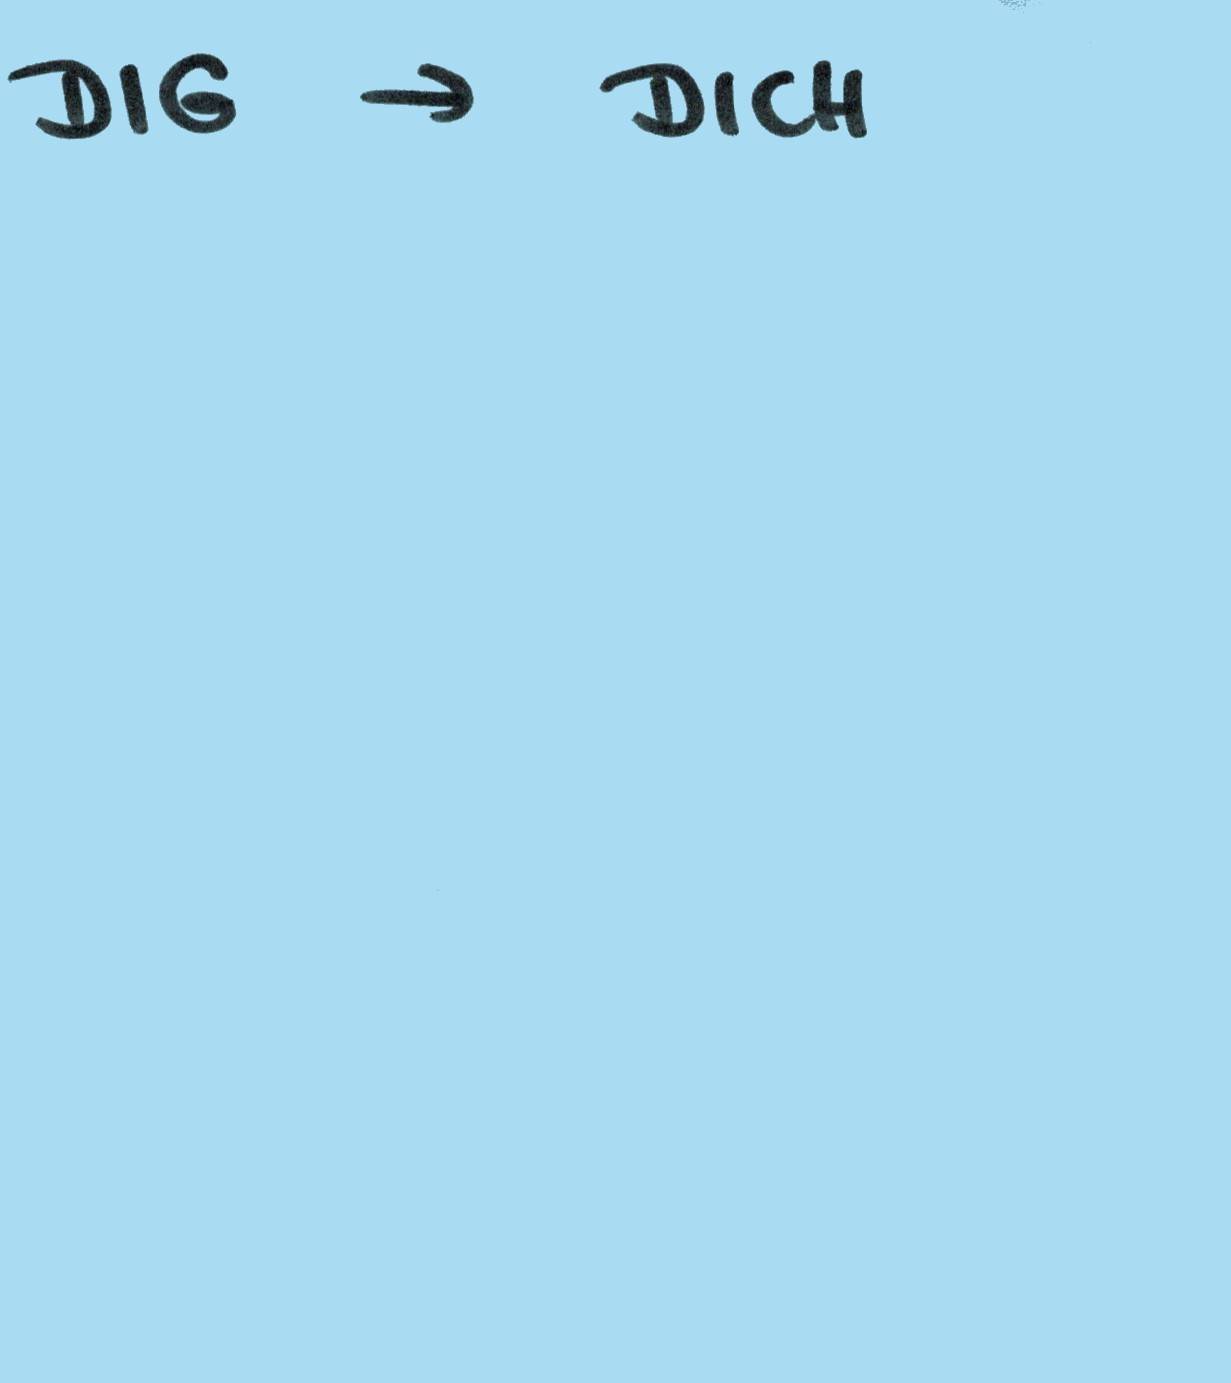 DIG → DICH